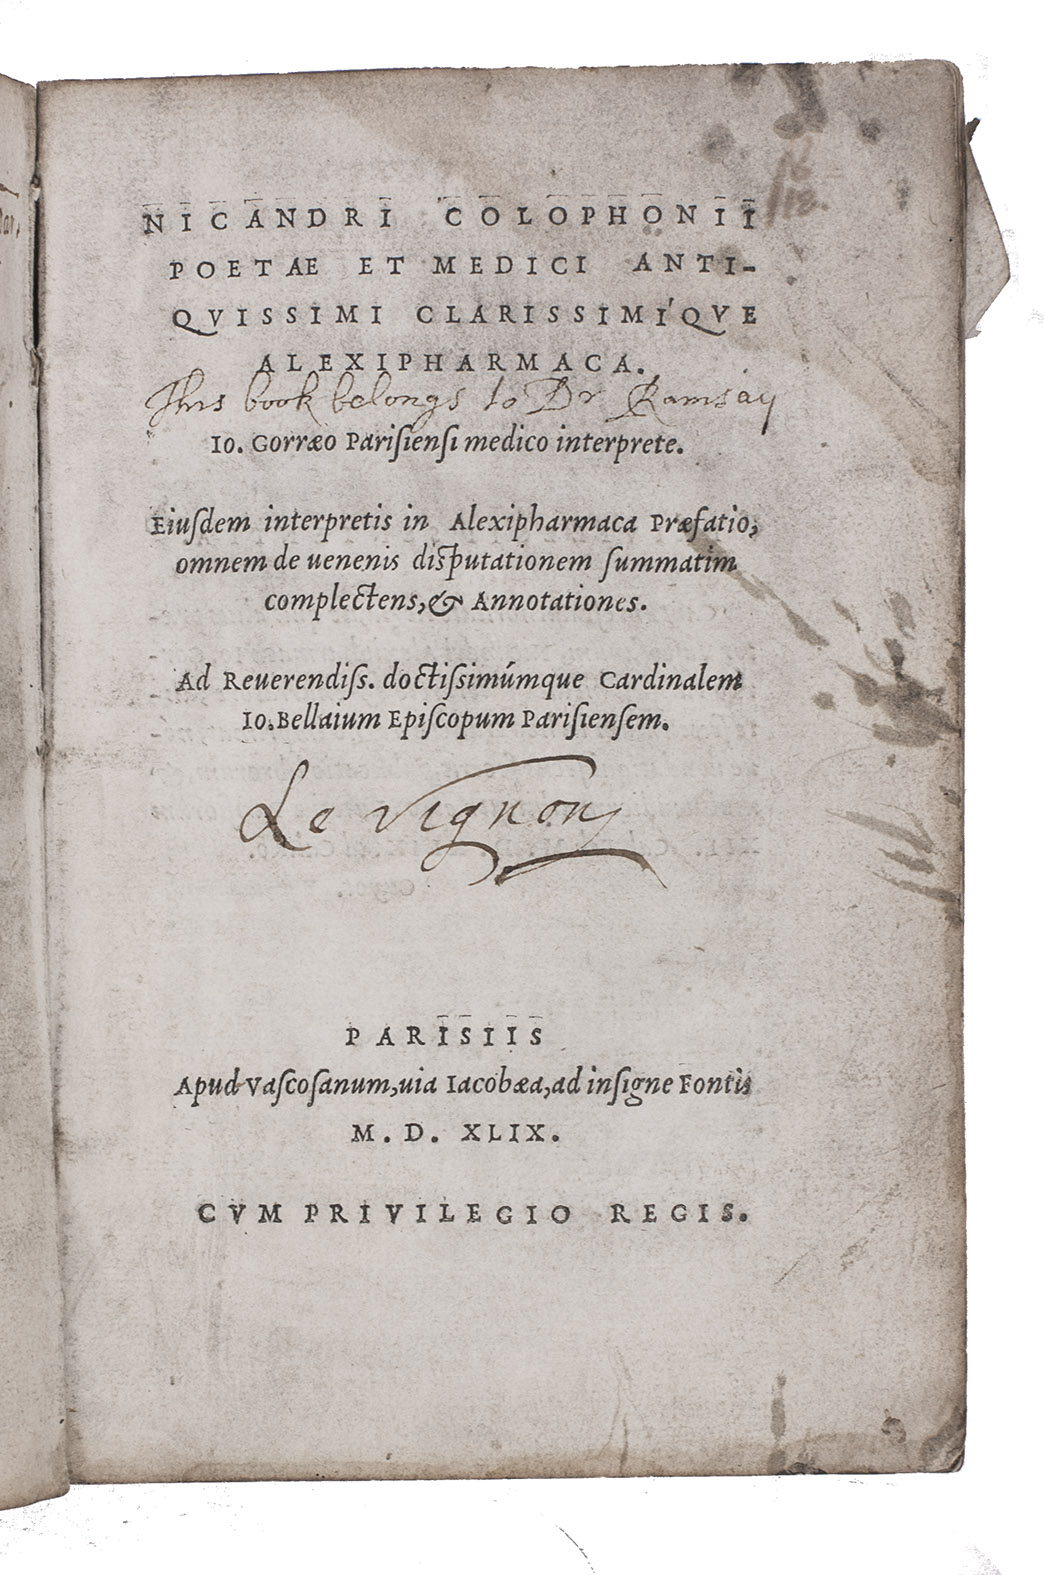 NICANDRI COLOPHONII
POETAE ET MEDICI ANTI-
QVISSIMI CLARISSIMÍQVE
ALEXIPHARMACA.
This book belongs to Dr Ramsay
IO. Gorræo Parisiensi medico interprete.
Eiuſdem interpretis in Alexipharmaca Præfatio,
omnem de uenenis disputationem ſummatim
complectens, & Annotationes.
Ad Reuerendiſſ. doctiſsimúmque Cardinalem
IO. Bellaium Epiſcopum Pariſienſem.
Le Vignon
PARISIIS
Apud Vaſcoſanum, uia Iacobæa, ad inſigne Fontis
M. D. XLIX.
CVM PRIVILEGIO REGIS.